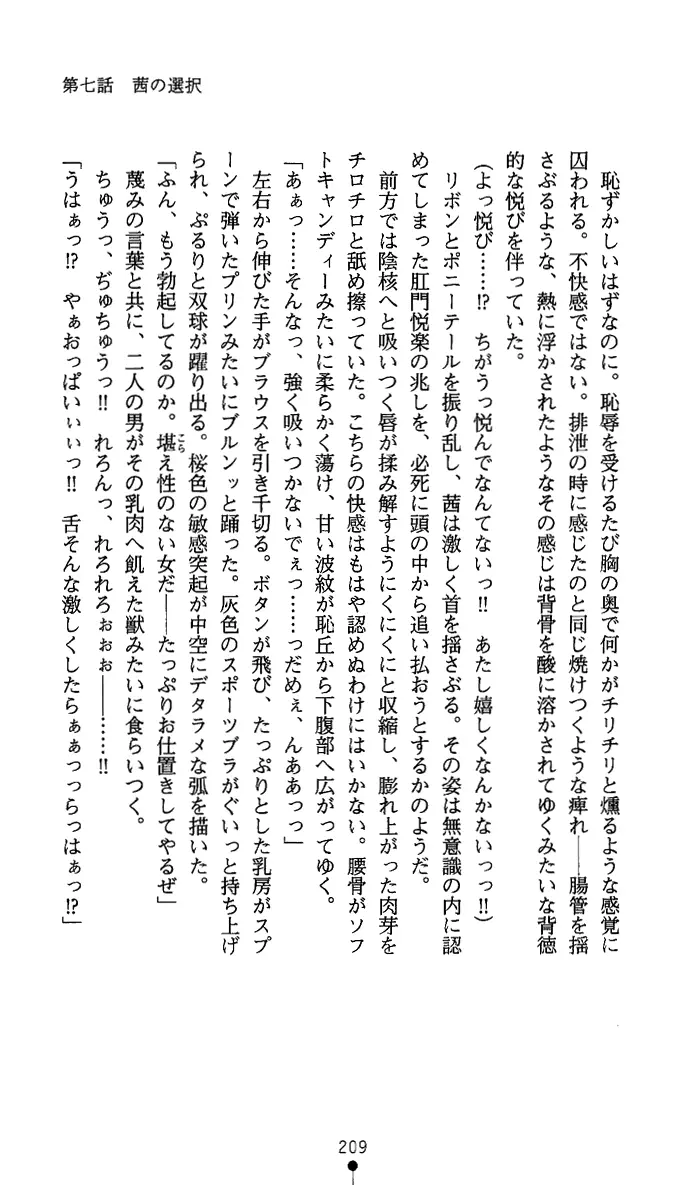 第七話　茜の選択
　恥ずかしいはずなのに。恥辱を受けるたび胸の奥で何かがチリチリと燻るような感覚に
囚われる。不快感ではない。排泄の時に感じたのと同じ焼けつくような痺れ――腸管を揺
さぶるような、熱に浮かされたようなその感じは背骨を酸に溶かされてゆくみたいな背徳
的な悦びを伴っていた。
（よっ悦び……!?　ちがうっ悦んでなんてないっ!!　あたし嬉しくなんかないっっ!!）
　リボンとポニーテールを振り乱し、茜は激しく首を揺さぶる。その姿は無意識の内に認
めてしまった肛門悦楽の兆しを、必死に頭の中から追い払おうとするかのようだ。
　前方では陰核へと吸いつく唇が揉み解すようにくにくにと収縮し、膨れ上がった肉芽を
チロチロと舐め擦っていた。こちらの快感はもはや認めぬわけにはいかない。腰骨がソフ
トキャンディーみたいに柔らかく蕩け、甘い波紋が恥丘から下腹部へ広がってゆく。
「あぁっ……そんなっ、強く吸いつかないでぇっ……っだめぇ、んああっっ」
　左右から伸びた手がブラウスを引き千切る。ボタンが飛び、たっぷりとした乳房がスプ
ーンで弾いたプリンみたいにブルンッと踊った。灰色のスポーツブラがぐいっと持ち上げ
られ、ぷるりと双球が躍り出る。桜色の敏感突起が中空にデタラメな弧を描いた。
「ふん、もう勃起してるのか。堪え性のない女だ――たっぷりお仕置きしてやるぜ」
こら
　蔑みの言葉と共に、二人の男がその乳肉へ飢えた獣みたいに食らいつく。
　ちゅうっ、ぢゅちゅうっ!!　れろんっ、れろれろぉぉぉ――……!!
「うはぁっ!?　やぁおっぱいぃぃっ!!　舌そんな激しくしたらぁぁっっらっはぁっ!?」
209